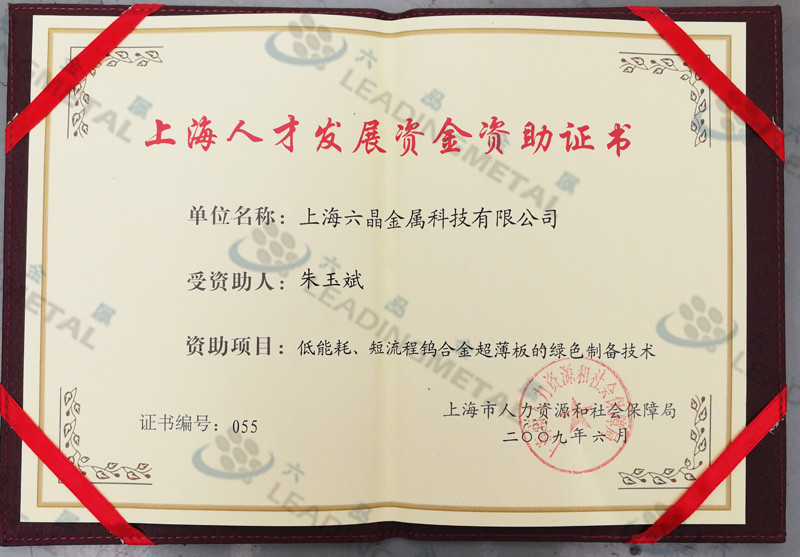 上海人才发展资金资助证书
单位名称：上海六晶金属科技有限公司
受资助人：朱玉斌
资助项目：低能耗、短流程钨合金超薄板的绿色制备技术
证书编号：055
上海市人力资源和社会保障局
二〇〇九年六月
六晶金属
LEADINGMETAL